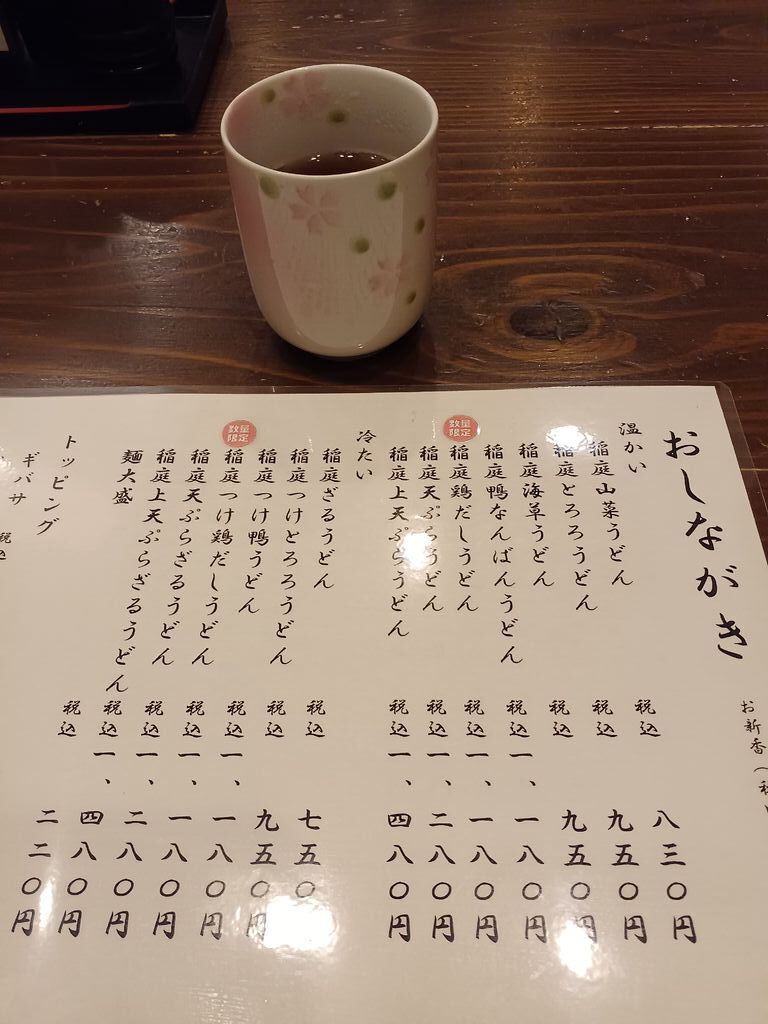 お新香（
おしながき
温かい
稲庭山菜うどん 税込 八三〇円
稲庭とろろうどん 税込 九五〇円
稲庭海草うどん 税込 九五〇円
稲庭鴨なんばんうどん 税込一、一八〇円
数量
限定
稲庭鶏だしうどん 税込一、一八〇円
稲庭天ぷらうどん 税込一、二八〇円
稲庭上天ぷらうどん 税込一、四八〇円
冷たい
稲庭ざるうどん 税込 七五〇円
稲庭つけとろろうどん 税込 九五〇円
稲庭つけ鴨うどん 税込一、一八〇円
数量
限定
稲庭つけ鶏だしうどん 税込一、一八〇円
稲庭天ぷらざるうどん 税込一、二八〇円
稲庭上天ぷらざるうどん 税込一、四八〇円
麺大盛 税込 二二〇円
トッピング
ギバサ 税込